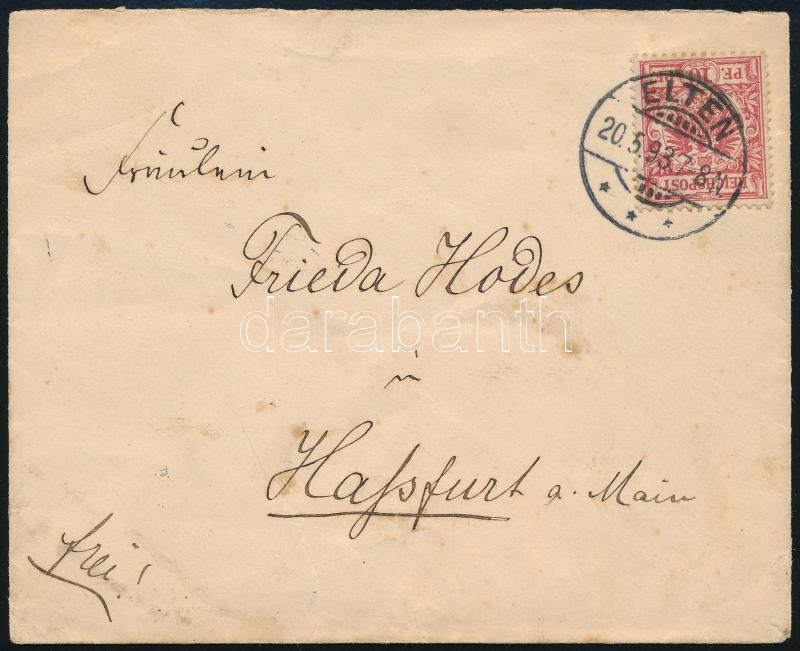 PF. 10 PF.
REICHSPOST
ELTEN
20.5.93.7-8.V
Fräulein
Frieda Hodes
darabanth
in
Haßfurt a. Main
frei!